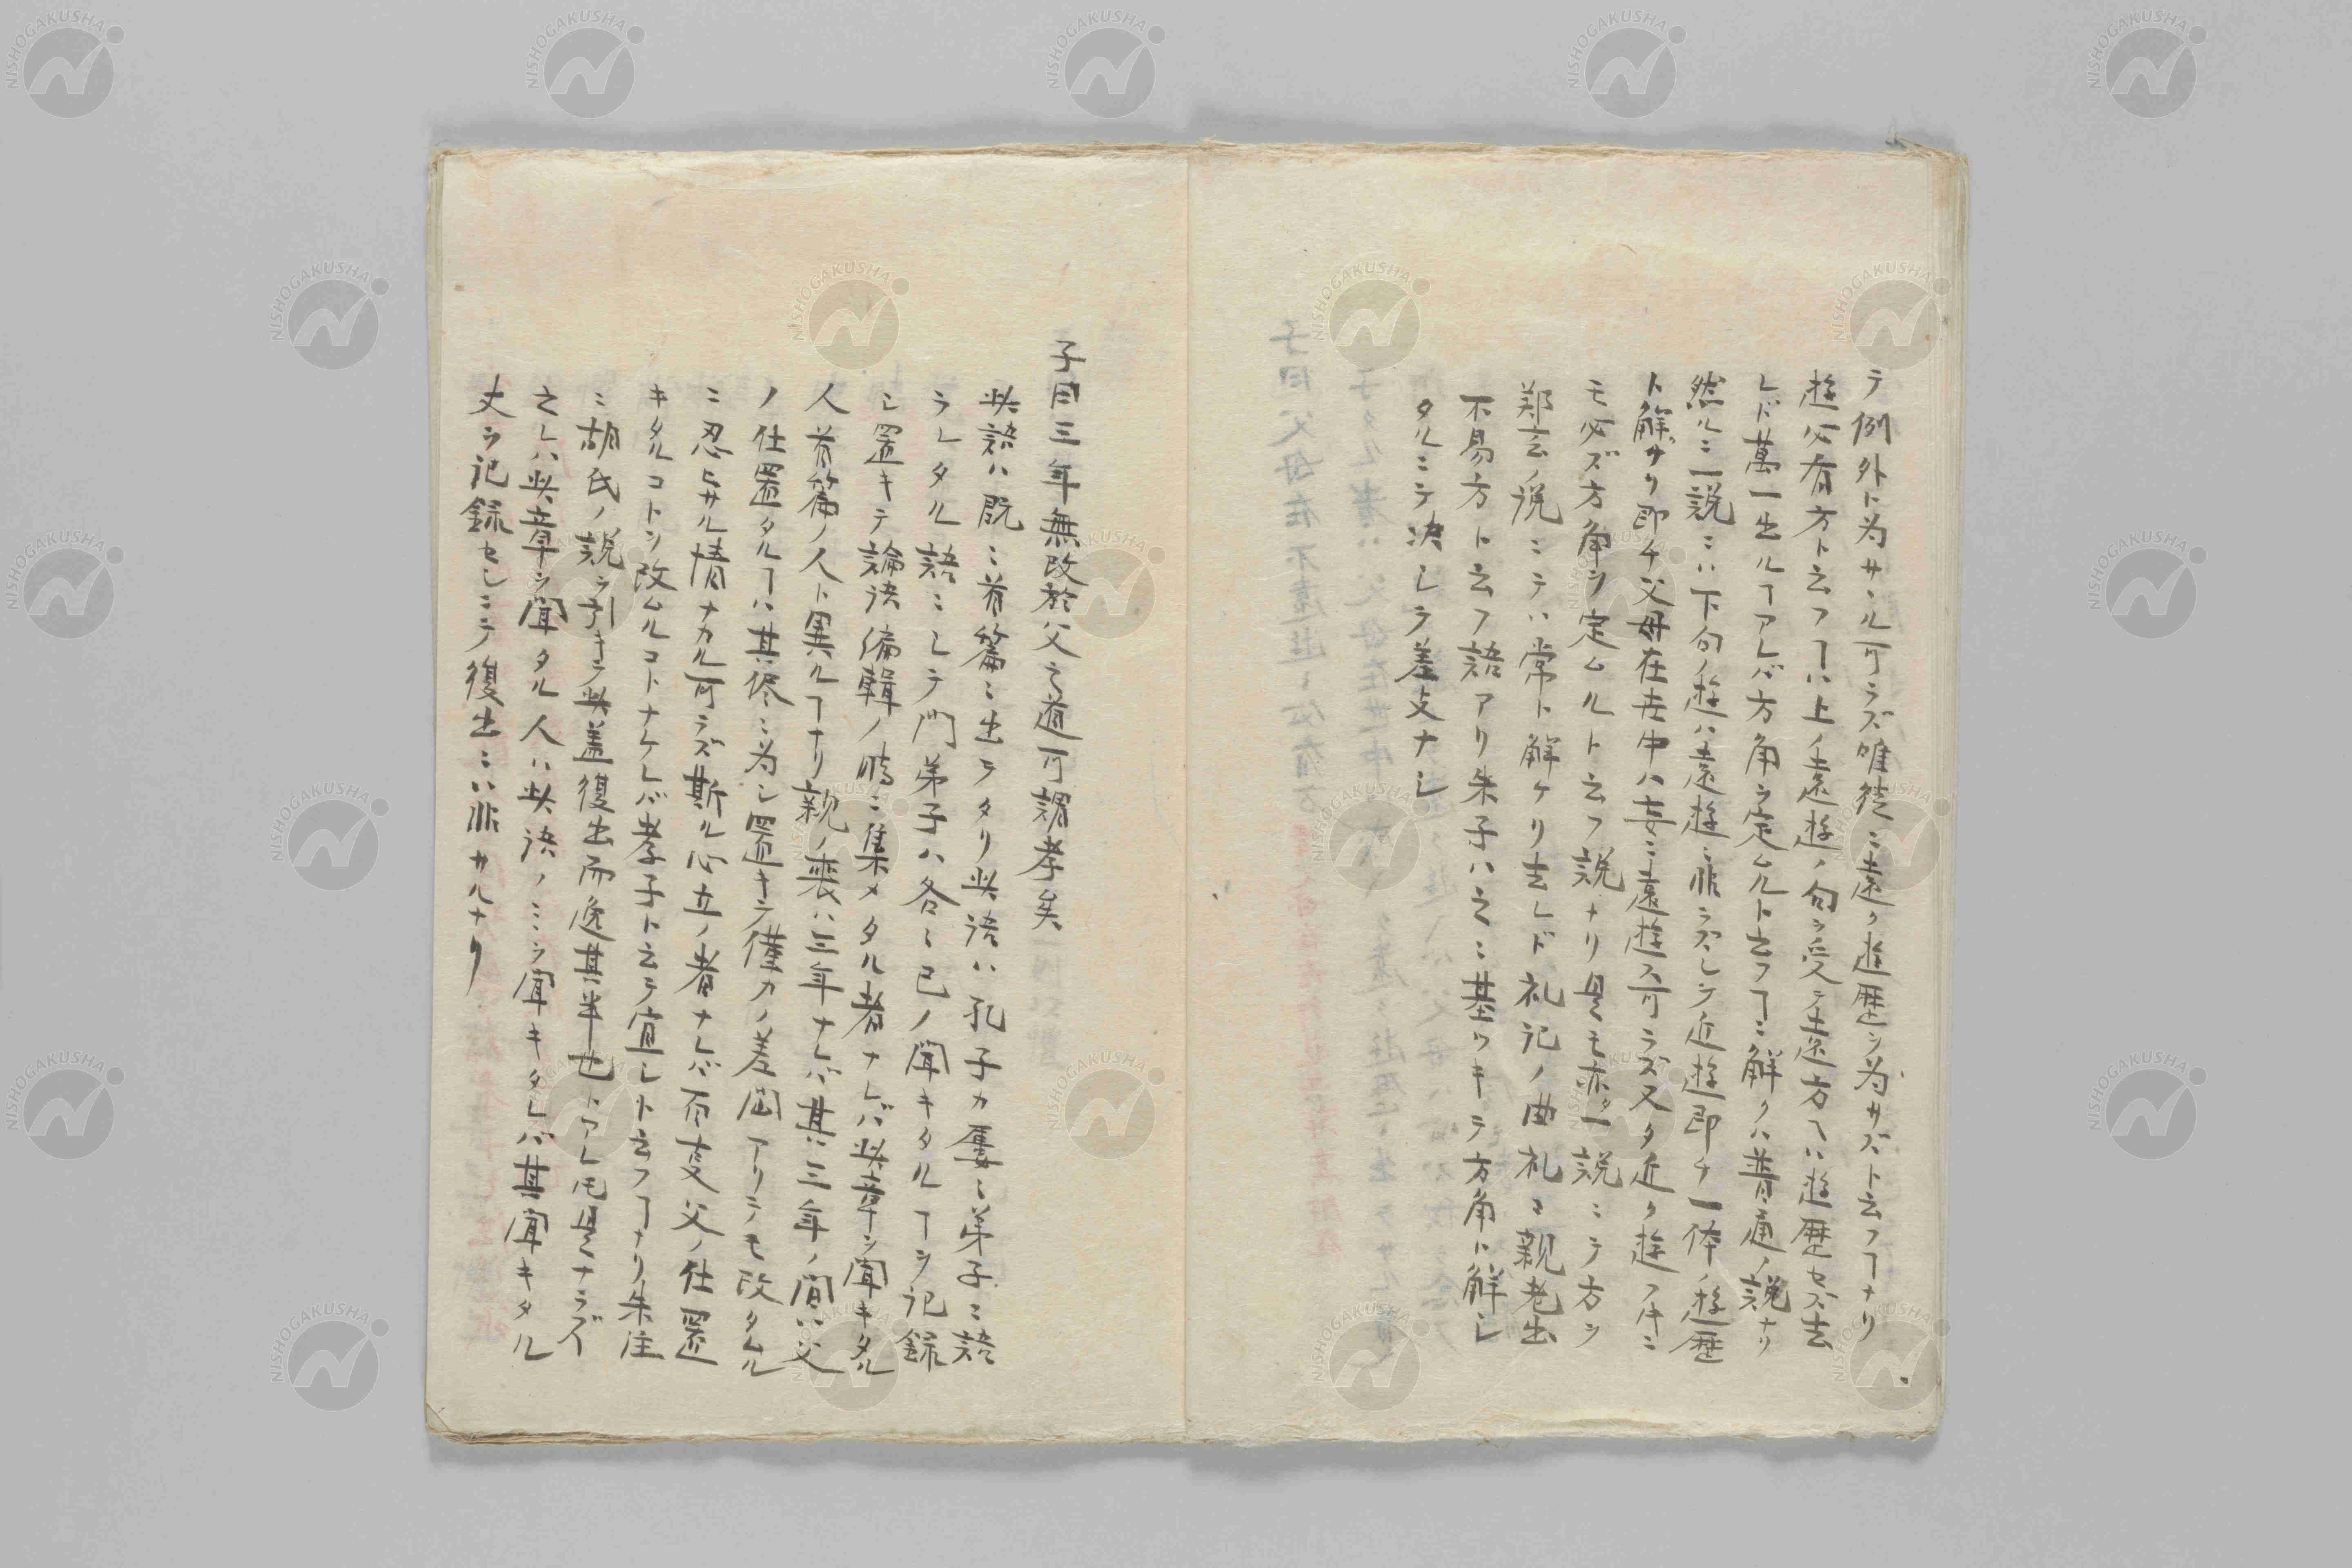 テ例外ト為サヽル可ラズ唯徒ニ遠ク遊歴ヲ為サズト云フヿナリ
遊必有方ト云フヿハ上ノ遠遊ノ句ヲ受テ遠方ヘハ遊歴セズ去
レド萬一出ルヿアレバ方角ヲ定ムルト云フヿニ解クハ普通ノ説ナリ
然ルニ一説ニハ下句ノ遊ハ遠遊ニ非ラズシテ近遊即チ一体ノ遊歴
ト解ザリ即チ父母在世中ハ妄ニ遠遊ス可ラズ又タ近ク遊フキニ
モ必ズ方角ヲ定ムルト云フ説ナリ是モ亦タ一説ニテ方ヲ
鄭玄ノ説ニテハ常ト解ケリ去レド礼記ノ曲礼ニ親老出
不易方ト云フ語アリ朱子ハ之ニ基ヅキテ方角ト解シ
タルニテ决シテ差支ナシ
子曰三年無改於父之道可謂孝矣
此語ハ既ニ首篇ニ出テタリ此語ハ孔子カ屢〻弟子ニ語
ラレタル語ニシテ門弟子ハ各〻己ノ聞キタルヿヲ記録
シ置キテ論語編輯ノ時ニ集メタル者ナレバ此章ヲ聞キタル
人首篇ノ人ト異ルヿナリ親ノ喪ハ三年ナレバ其三年ノ間ハ父
ノ仕置タルヿハ其侭ニ為シ置キテ僅カノ差図アリテモ改タムル
ニ忍ヒサル情ナカル可ラズ斯ル心立ノ者ナレバ不変父ノ仕置
キタルコトヲ改ムルコトナケレバ孝子ト云テ宜シト云フヿナリ朱注
ニ胡氏ノ説ヲ引キテ此盖復出而逸其半也トアレ𪜈是ナラズイ
之レハ此章ヲ聞タル人ハ此語ノミヲ聞キタレバ其聞キタル
丈ヲ記録セシニテ復出ニハ非サルナリ
NISHOGAKUSHA